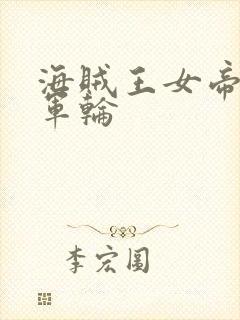 海賊王女帝
軍輪
李宏圖